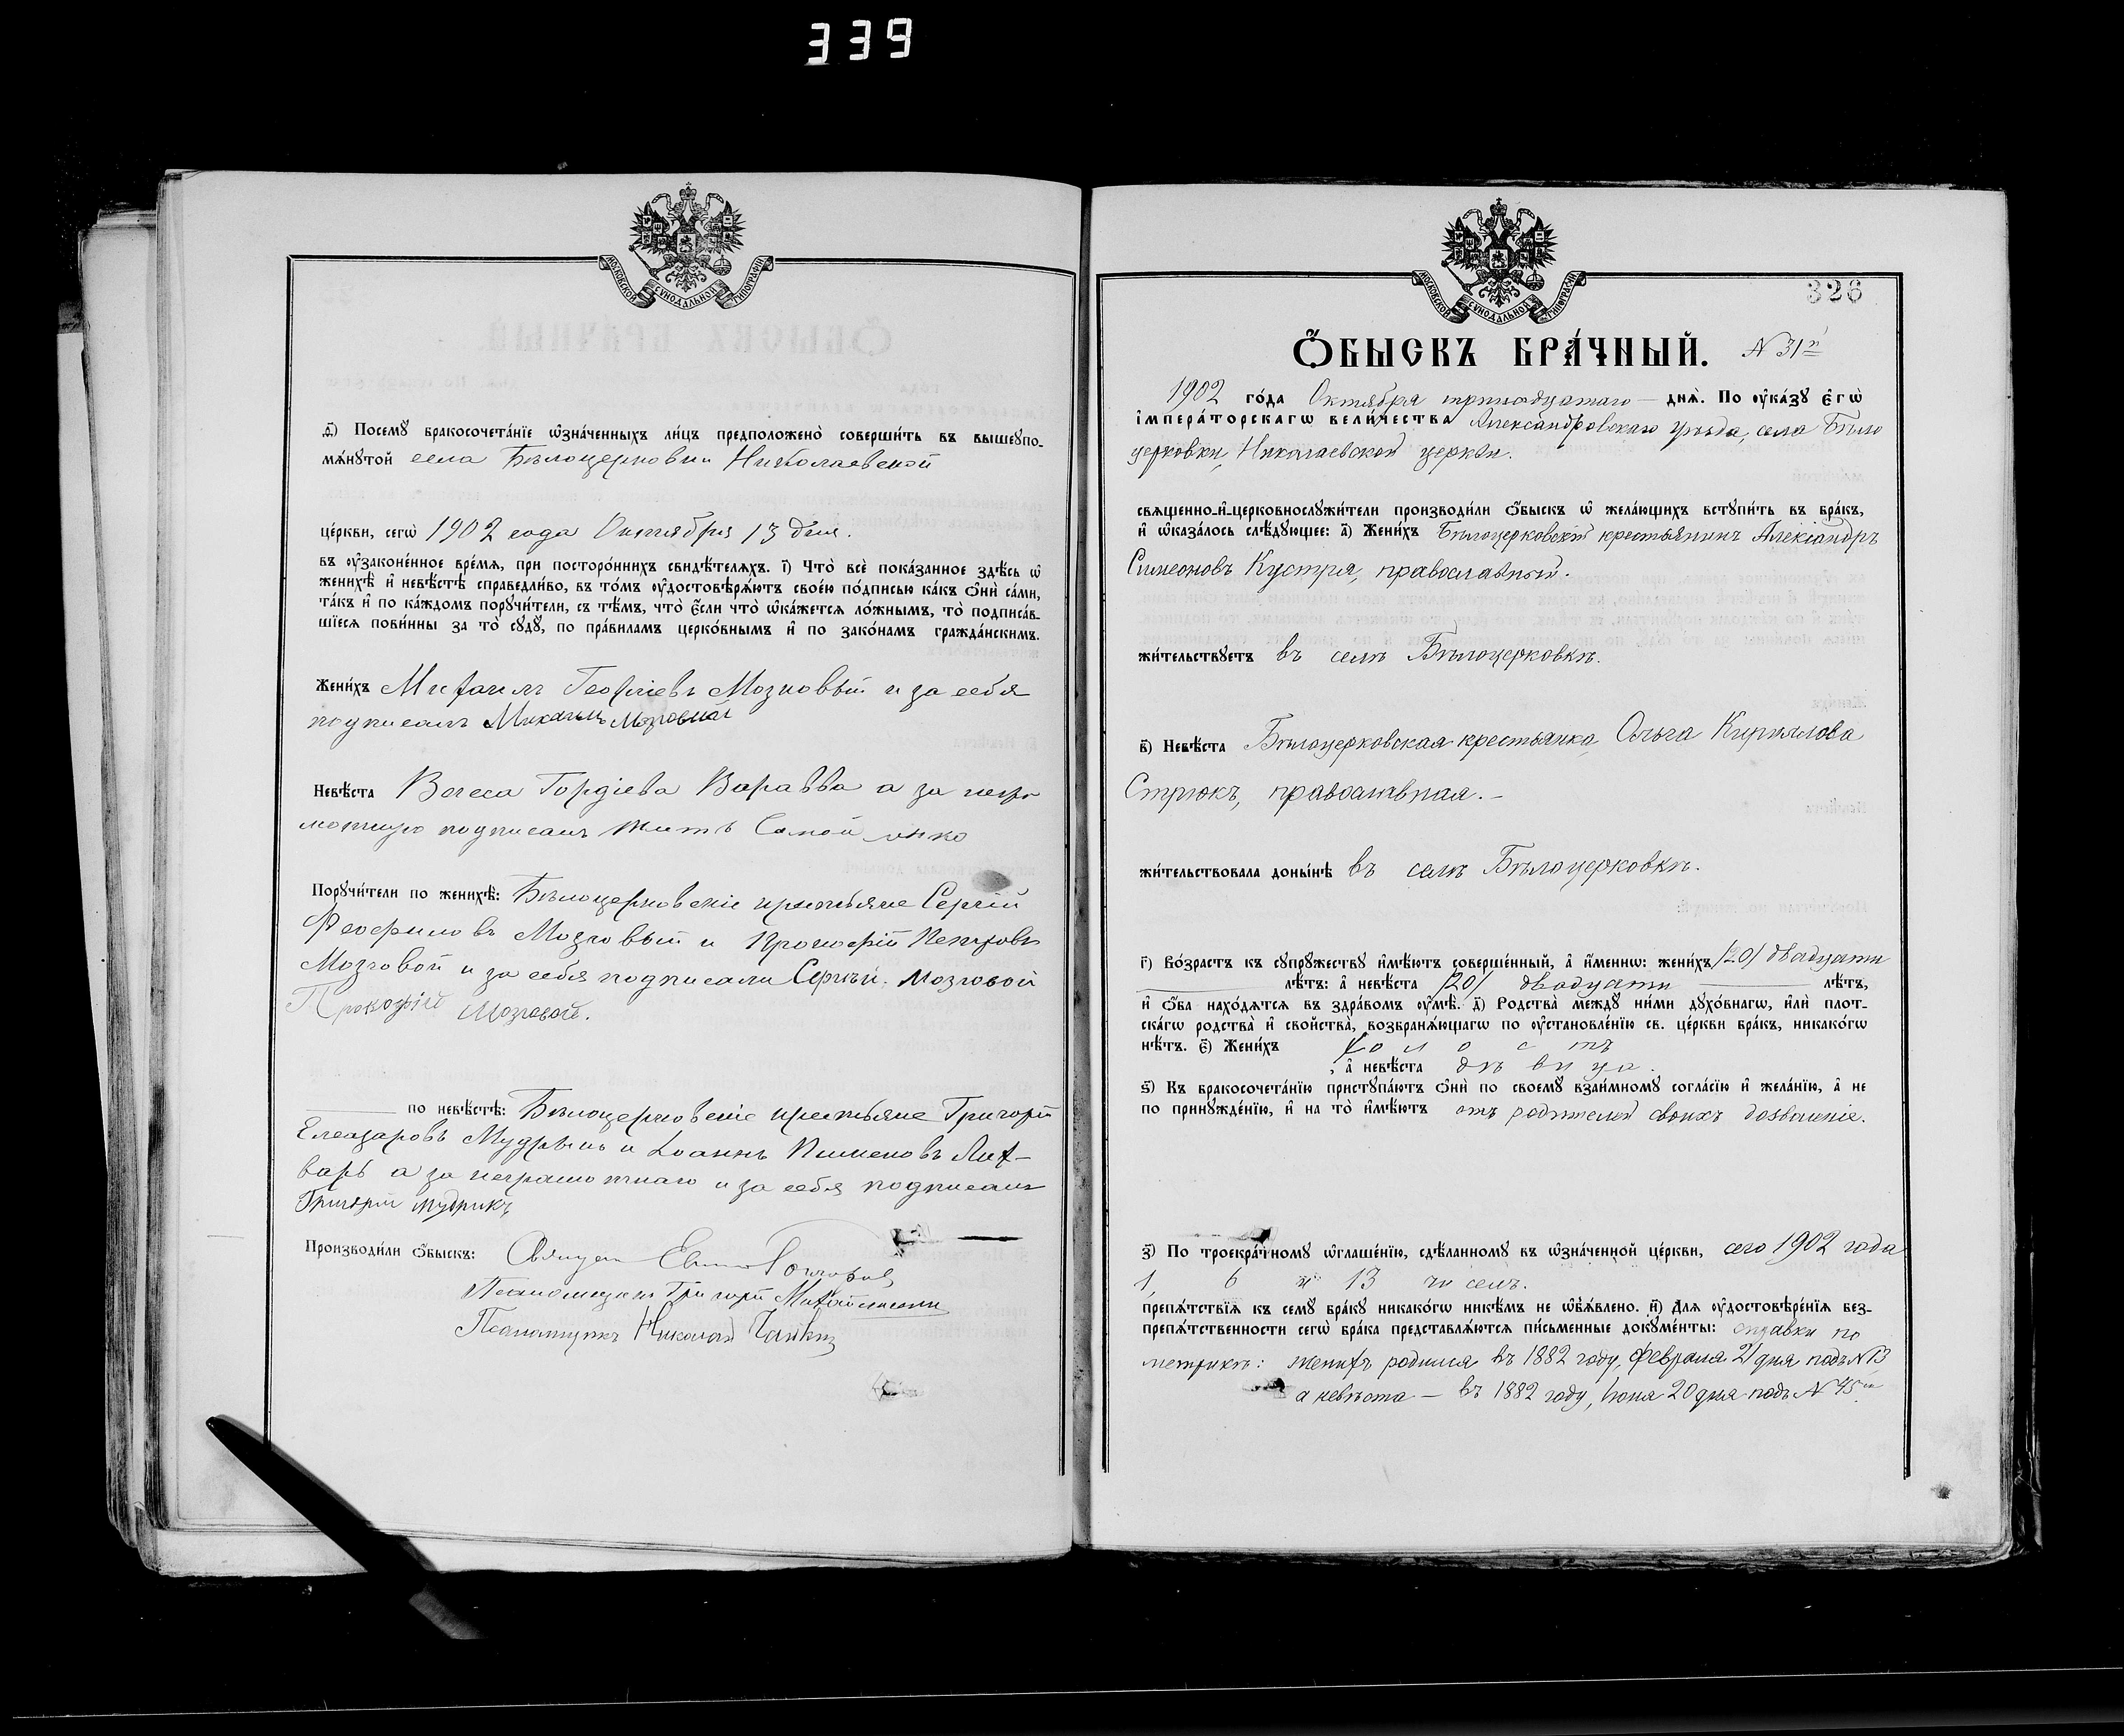 339
МОСКОВСКОЙ СѴНОДАЛЬНОЙ ТИПОГРАФІИ
д҃і) Посемꙋ̀ бракосочета́нїе ѡ҆зна́ченныхъ ли́цъ предположено̀ соверши́ть въ вышеꙋпо-
мѧ́нꙋтой села Бѣлоцерковки Николаевской
це́ркви, сегѡ̀ 1902 года Октября 13 дня.
въ ᲂу҆зако́ненное вре́мѧ, при посторо́ннихъ свидѣ́телѧхъ. і҃) Что̀ всѐ пока́занное здѣ́сь ѡ҆
женихѣ̀ и҆ невѣ́стѣ справедли́во, въ то́мъ ᲂу҆достовѣрѧ́ютъ свое́ю по́дписью ка́къ ѻ҆нѝ са́ми,
та́къ и҆ по ка́ждомъ порꙋчи́тели, съ тѣ́мъ, что̀ є҆́сли что̀ ѡ҆ка́жетсѧ ло́жнымъ, то̀ подписа́в-
шїесѧ пови́нны за то̀ сꙋдꙋ̀, по пра́виламъ церко́внымъ и҆ по зако́намъ гражда́нскимъ.
Жени́хъ Михаилъ Георгіевъ Мозговый и за себя
подписалъ Михаилъ Мозговой
Невѣ́ста Васса Гордіева Варавва а за негра
мотную подписалъ
Порꙋчи́тели по женихѣ̀: Бѣлоцерковскіе крестьяне Сергій
Феофиловъ Мозговый и Прокофій Петровъ
Мозговой и за себя подписали Сергѣй Мозговой
Прокофій Мозговой.
по невѣ́стѣ: Бѣлоцерковскіе крестьяне Григорій
Елеазаровъ Мудрыкъ и Іоаннъ Пименовъ Лих-
варь а за неграмотнаго и за себя подписалъ
Григорій Мудрикъ
Производи́ли ѻ҆́быскъ: Священ
Псаломщикъ Григорій
Псаломщикъ Николай
МОСКОВСКОЙ СѴНОДАЛЬНОЙ ТИПОГРАФІИ
326
Ѻ҆́БЫСКЪ БРА́ЧНЫЙ. N 31й
1902 го́да Октября тринадцатаго днѧ̀. По ᲂу҆ка́зꙋ є҆гѡ̀
і҆мпера́торскагѡ вели́чества Александровскаго уѣзда, села Бѣло
церковки, Николаевской церкви.
свѧще́нно-и҆-церковнослꙋжи́тели производи́ли ѻ҆́быскъ ѡ҆ жела́ющихъ встꙋпи́ть въ бра́къ,
и҆ ѡ҆каза́лось слѣ́дꙋющее: а҃) Жени́хъ Бѣлоцерковскій крестьянинъ Александръ
Симеоновъ Кустря, православный.
жи́тельствꙋетъ въ селѣ Бѣлоцерковкѣ.
в҃) Невѣ́ста Бѣлоцерковская крестьянка, Ольга Кириллова
Стрюкъ, православная.–
жи́тельствовала доны́нѣ въ селѣ Бѣлоцерковкѣ.
г҃) Во́зрастъ къ сꙋпрꙋ́жествꙋ и҆мѣ́ютъ соверше́нный, а҆ и҆́меннѡ: жени́хъ /20/ двадцати
лѣ́тъ: а҆ невѣ́ста /20/ двадцати лѣ́тъ,
и҆ ѻ҆́ба нахо́дѧтсѧ въ здра́вомъ ᲂу҆мѣ̀. д҃) Родства̀ междꙋ̀ ни́ми дꙋхо́внагѡ, и҆лѝ плот-
ска́гѡ родства̀ и҆ свойства̀, возбранѧ́ющагѡ по ᲂу҆становле́нїю св. це́ркви бра́къ, никако́гѡ
нѣ́тъ. є҃) Жени́хъ холостъ
, а҆ невѣ́ста дѣвица.
ѕ҃) Къ бракосочета́нїю пристꙋпа́ютъ ѻ҆нѝ по своемꙋ̀ взаи́мномꙋ согла́сїю и҆ жела́нїю, а҆ не
по принꙋжде́нїю, и҆ на то̀ и҆мѣ́ютъ отъ родителей своихъ дозволеніе.
з҃) По троекра́тномꙋ ѡ҆глаше́нїю, сдѣ́ланномꙋ въ ѡ҆зна́ченной це́ркви, сего 1902 года
1, 6 и 13 чиселъ.
препѧ́тствїѧ къ семꙋ̀ бра́кꙋ никако́гѡ никѣ́мъ не ѡ҆б̾ѧ́влено. и҃) Длѧ ᲂу҆достовѣре́нїѧ без-
препѧ́тственности сегѡ̀ бра́ка представлѧ́ютсѧ пи́сьменные докꙋме́нты: справки по
метрикѣ: женихъ родился въ 1882 году, Февраля 21 дня подъ N 13
а невѣста — въ 1882 году, Іюня 20 дня подъ N 45